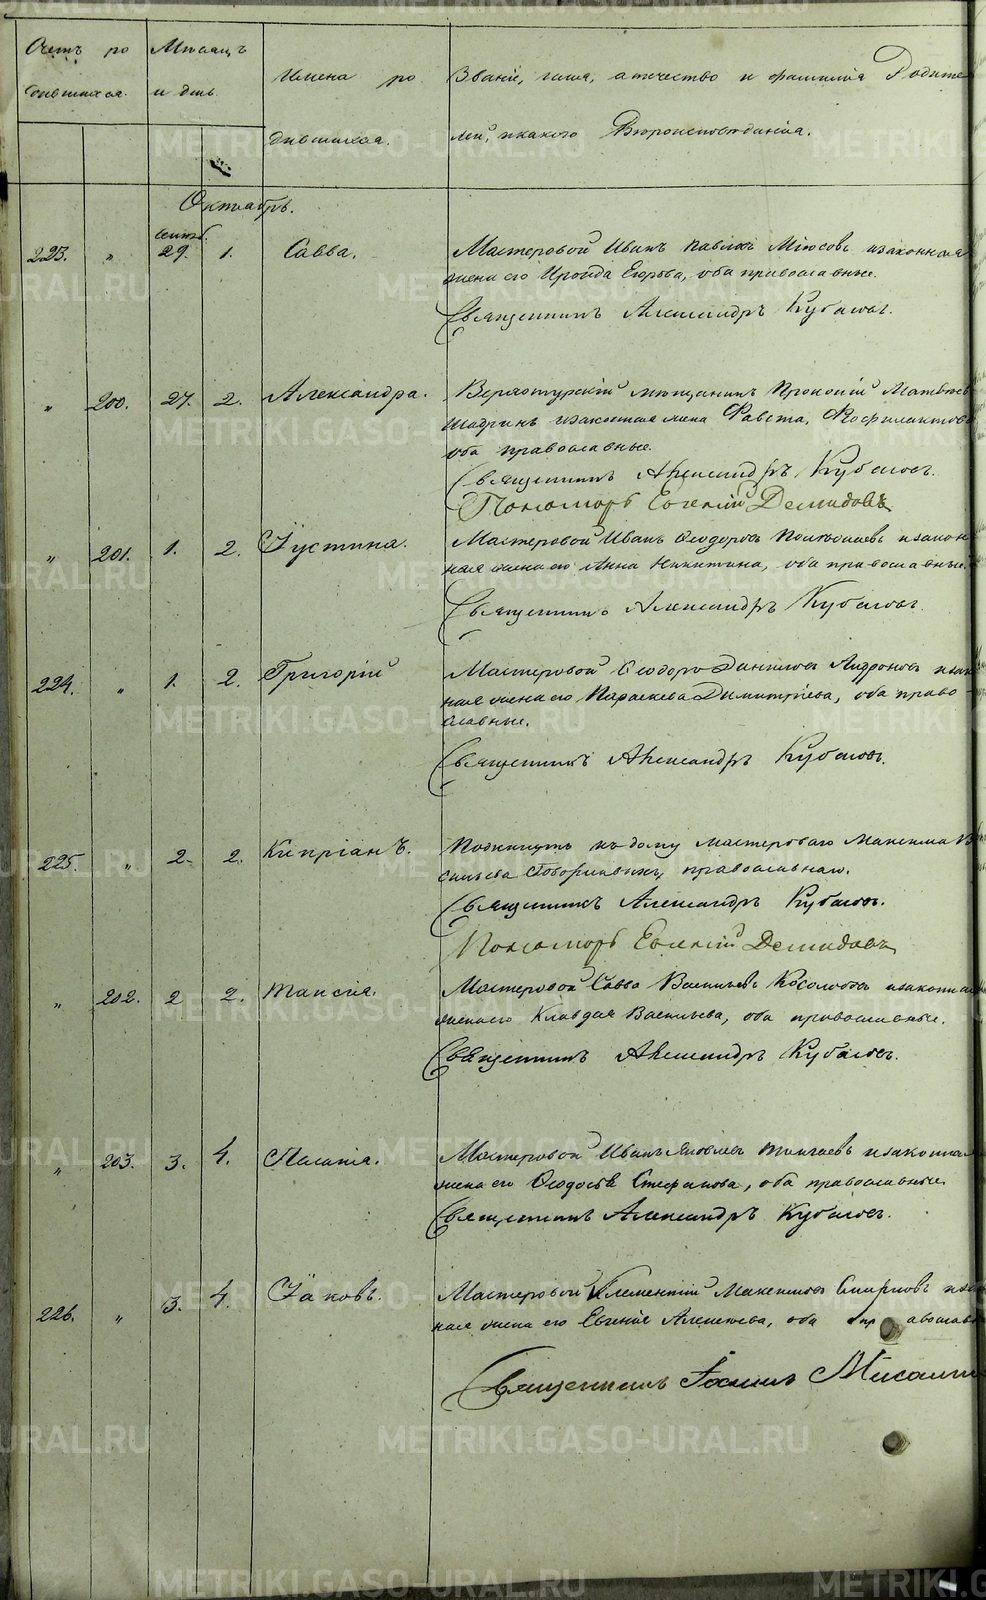 Счетъ ро
дившихся.
Мѣсяцъ
и день.
Имена ро
дившихся.
Званіе, имя, отчество и фамилія Родите
лей, и какого Вѣроисповѣданія.
Октябрь.
223. " сентяб. 29. 1. Савва.
Мастеровой Иванъ Павловъ и законная
жена его Ираида Егорова, оба православные.
Священникъ Александръ
" 200. 27. 2. Александра.
Верхотурскій мѣщанинъ Прокопій Матвѣевъ
Шадринъ и законная жена Фавста Феофилактова
оба православные.
Священникъ Александръ
Пономарь Евгеній Демидовъ
" 201. 1. 2. Іустина.
Мастеровой Иванъ Ѳеодоровъ и закон
ная жена его Анна Никитина, оба православные.
Священникъ Александръ
224. " 1. 2. Григорій
Мастеровой Ѳеодоръ Даниловъ Андроновъ и закон
ная жена его Параскева Димитріева, оба право
славные.
Священникъ Александръ
225. " 2. 2. Кипріанъ.
Подкинутъ къ дому мастероваго Максима Ва
сильева православнаго.
Священникъ Александръ
Пономарь Евгеній Демидовъ
" 202. 2 2. Таисія.
Мастеровой Савва Васильевъ и законная
жена его Клавдія Васильева, оба православные.
Священникъ Александръ
" 203. 3. 4. Пелагія.
Мастеровой Иванъ Яковлевъ и законная
жена его Ѳеодосія Стефанова, оба православные.
Священникъ Александръ
226. " 3. 4. Іаковъ.
Мастеровой Климентій Максимовъ Смирновъ и закон
ная жена его Евгенія Алексѣева, оба православные
Священникъ Іоаннъ
METRIKI.GASO-URAL.RU